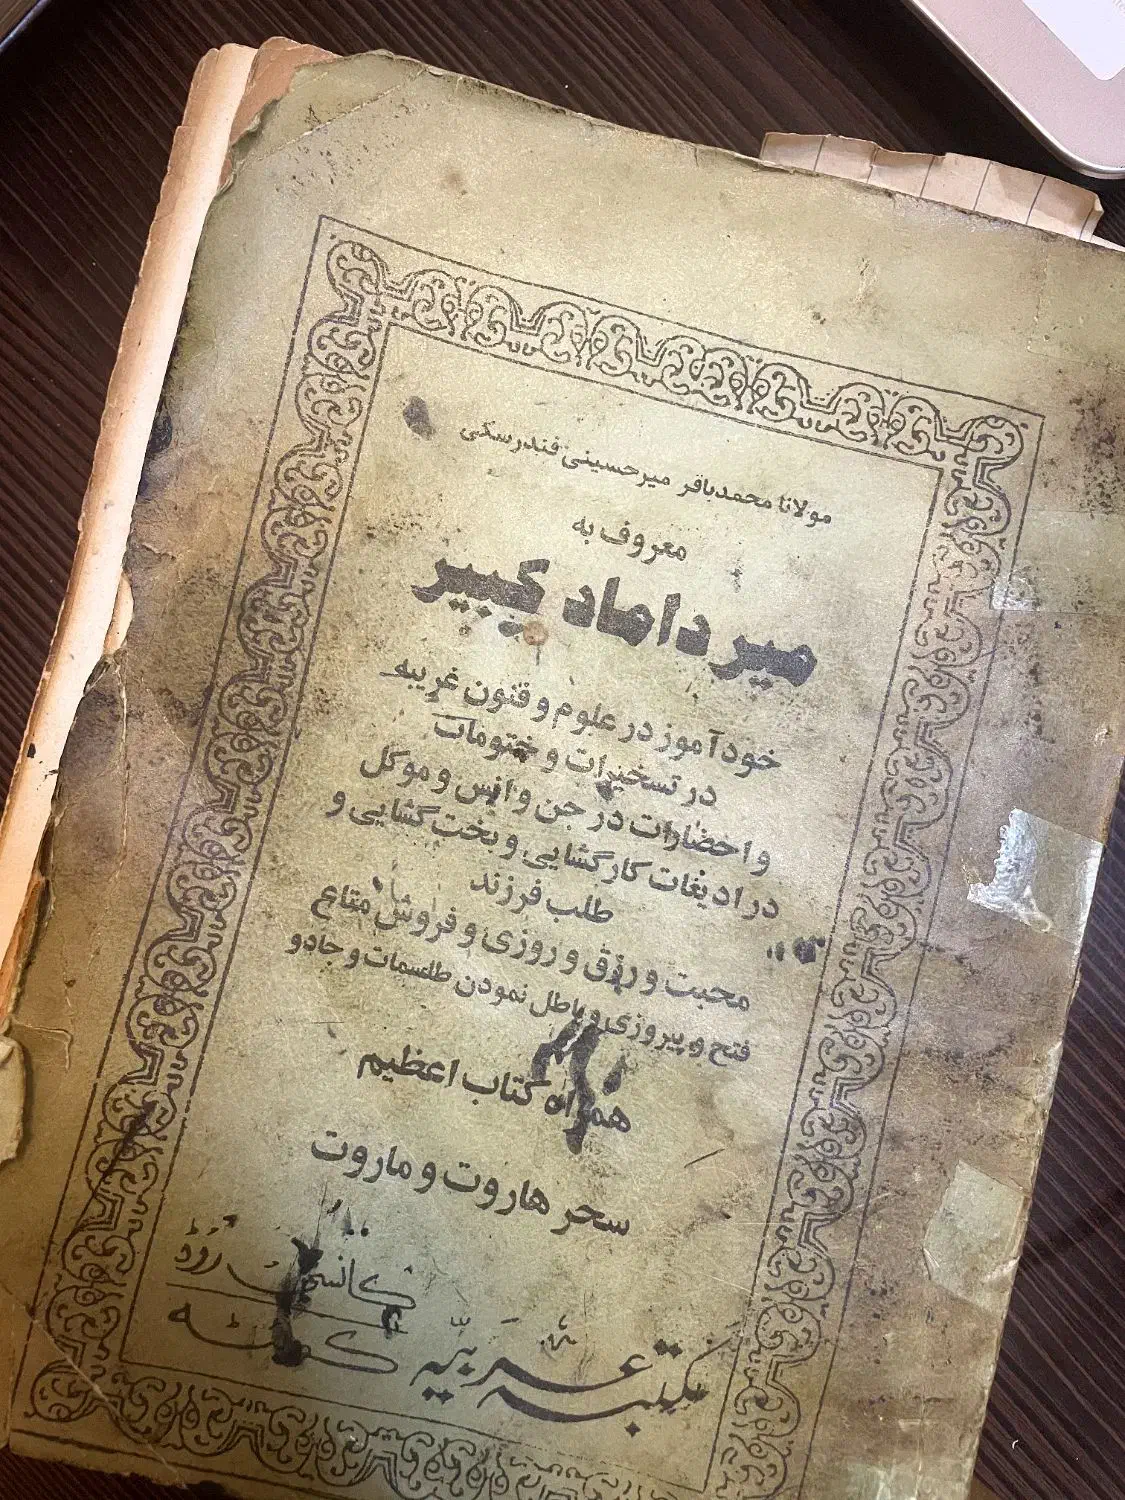 مولانا محمدباقر میرحسینی فندرسکی
معروف به
میرداماد کبیر
خودآموز در علوم و فنون غریبه
در تسخیرات و ختومات
و احضارات در جن و انس و موکل
در ادیغات کارگشایی و بخت گشایی و
طلب فرزند
محبت و رزق و روزی و فروش متاع
فتح و پیروزی و باطل نمودن طلسمات و جادو
همراه کتاب اعظیم
سحر هاروت و ماروت
کانسی روڈ
مکتبہ عربیہ کوئٹہ